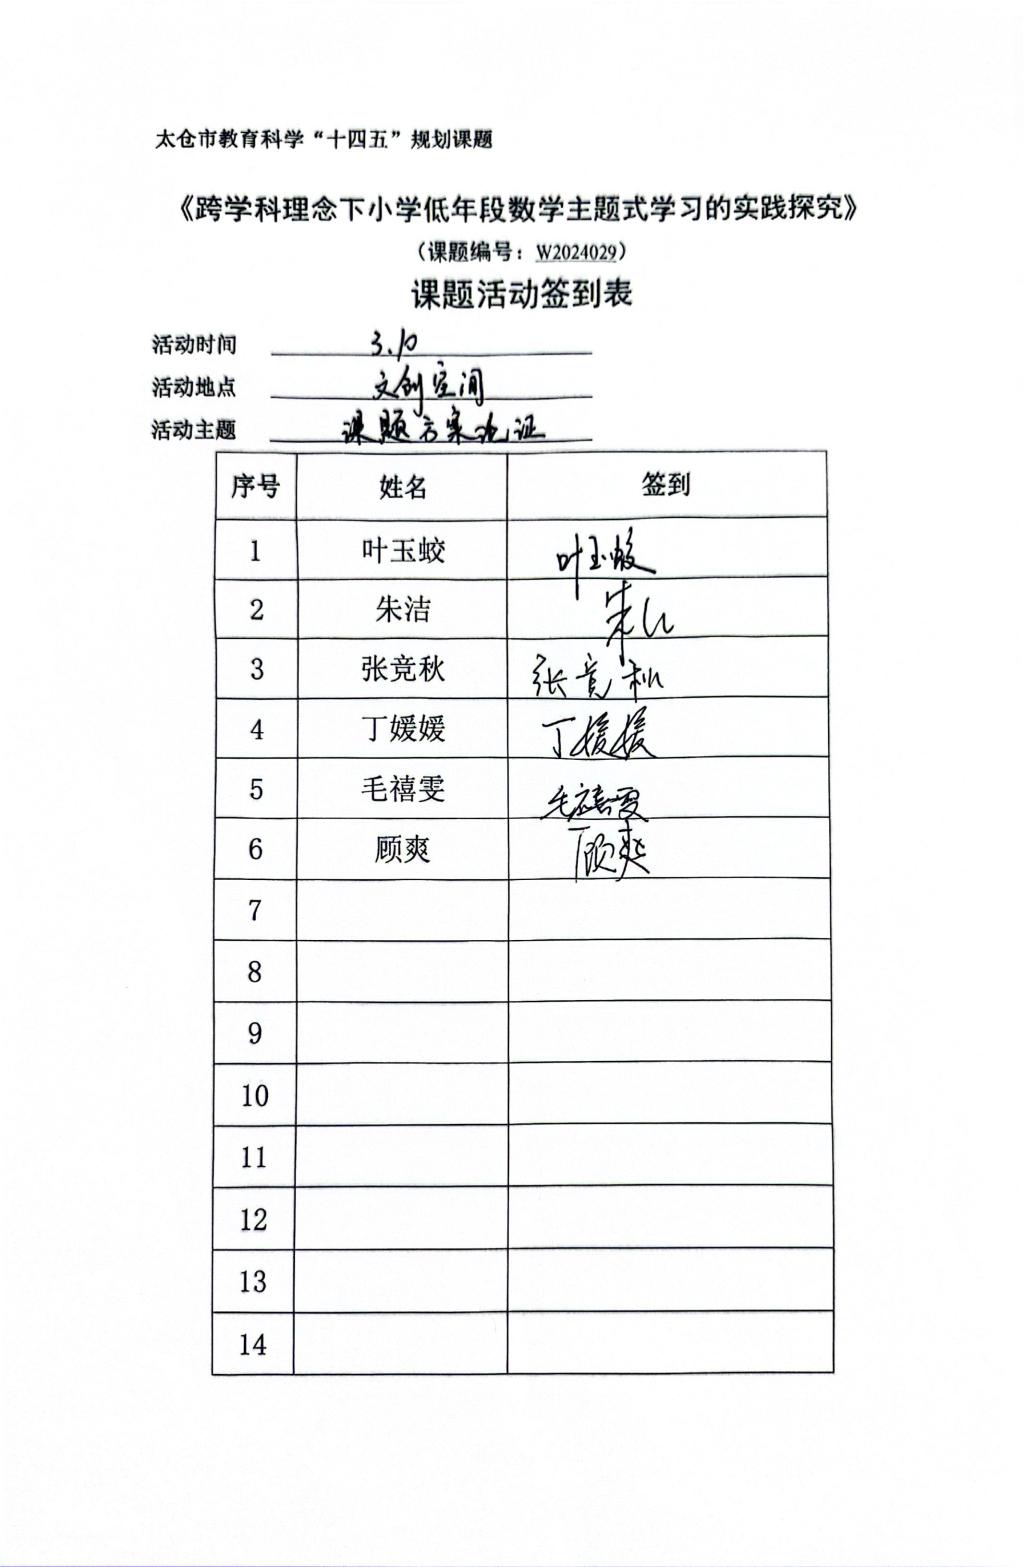 太仓市教育科学“十四五”规划课题
《跨学科理念下小学低年段数学主题式学习的实践探究》
（课题编号：W2024029）
课题活动签到表
活动时间 3.10
活动地点 文创空间
活动主题 课题方案论证
序号 姓名 签到
1 叶玉蛟 叶玉蛟
2 朱洁 朱洁
3 张竞秋 张竞秋
4 丁媛媛 丁媛媛
5 毛禧雯 毛禧雯
6 顾爽 顾爽
7
8
9
10
11
12
13
14